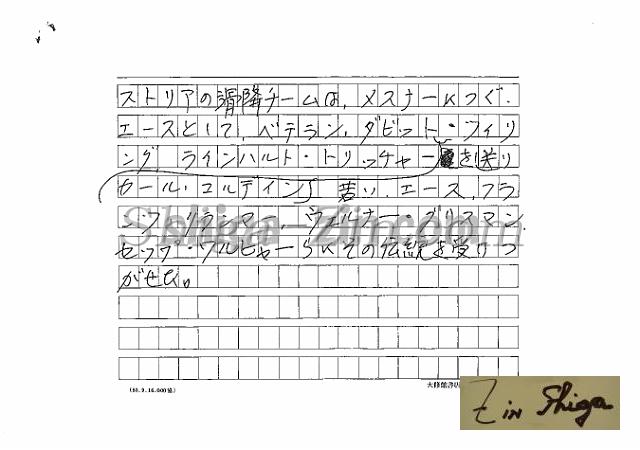 ストリアの滑降チームは、メスナーにつぐ、
エースとして、ベテラン、ダビット・ツィリ
ング ラインハルト・トリッチャーを送り
カール・コルディン 若い、エース、フラ
ンツ・クラマー、ウェルナー・グリスマン、
セップ・ワルヒャーらにその伝統を受けつ
がせた。
Shiga-Zin.com
(48.9.16.000協)
大修館書店
Z in Shiga